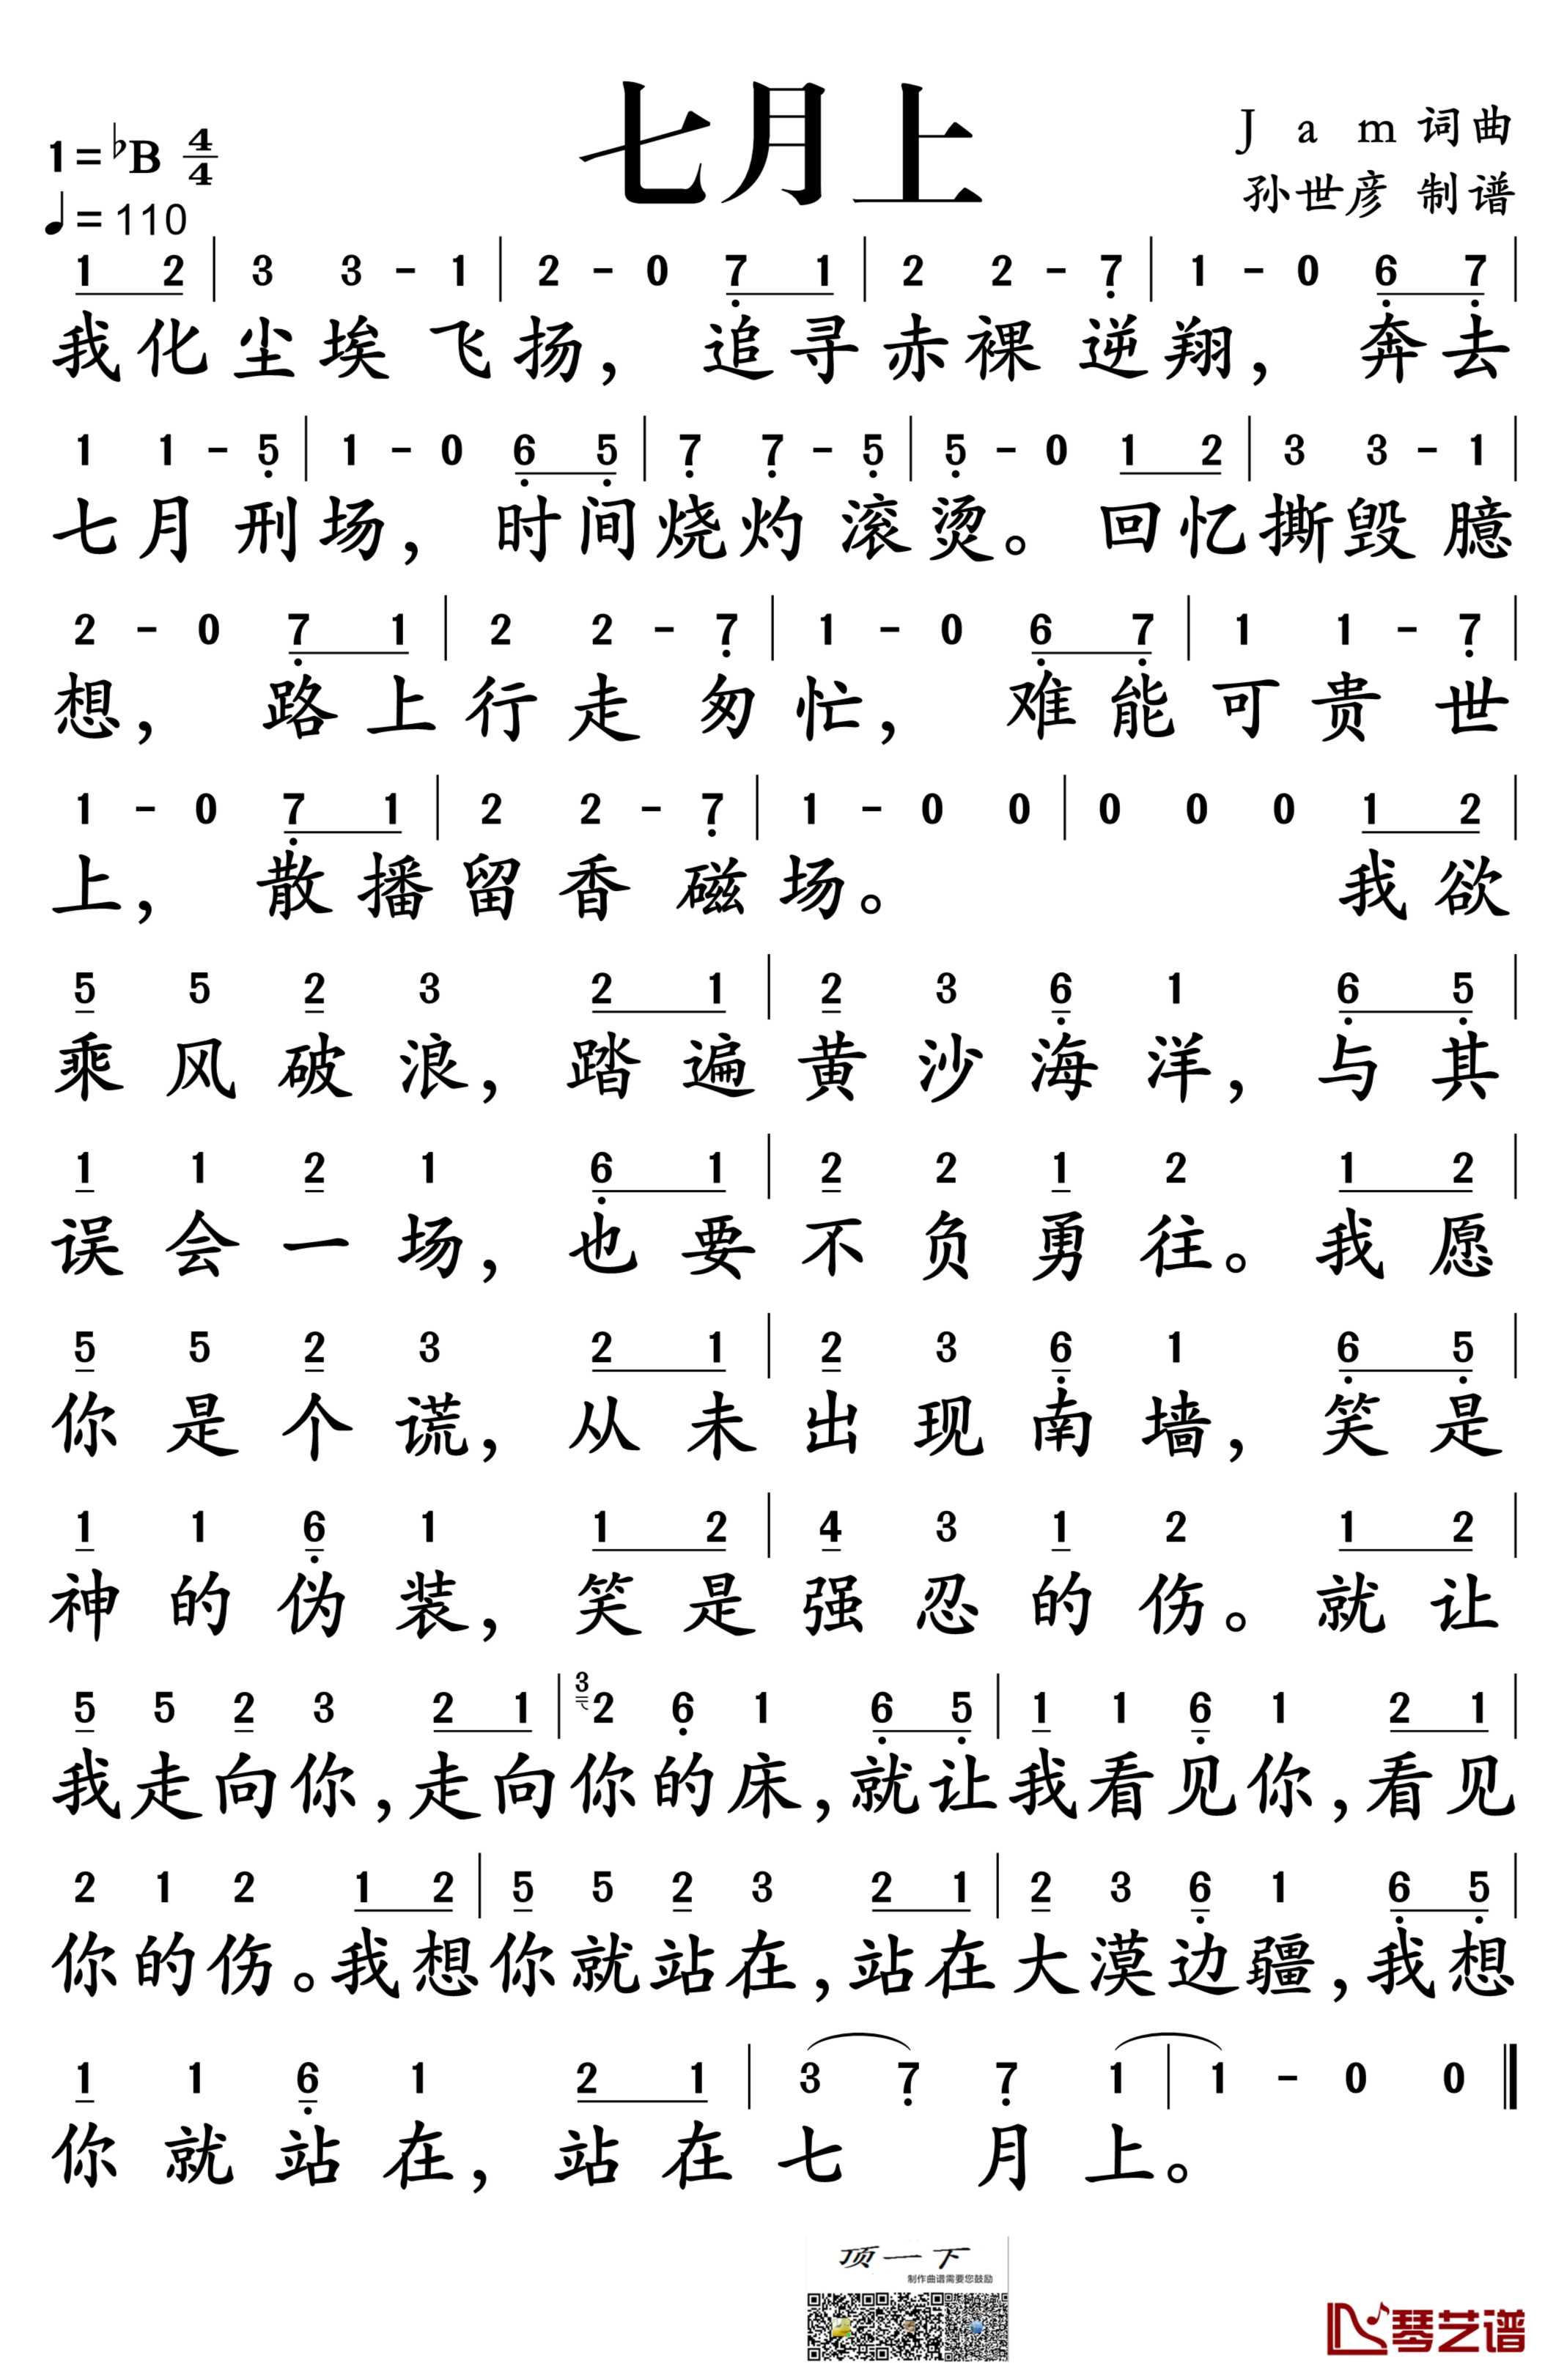 七月上
1=♭B 4/4
♩=110
J a m 词曲
孙世彦 制谱
1 2 | 3 3 - 1 | 2 - 0 7̣ 1 | 2 2 - 7̣ | 1 - 0 6̣ 7̣ |
我化尘埃飞扬，追寻赤裸逆翔，奔去
1 1 - 5̣ | 1 - 0 6̣ 5̣ | 7̣ 7̣ - 5̣ | 5̣ - 0 1 2 | 3 3 - 1 |
七月刑场，时间烧灼滚烫。回忆撕毁臆
2 - 0 7̣ 1 | 2 2 - 7̣ | 1 - 0 6̣ 7̣ | 1 1 - 7̣ |
想，路上行走匆忙，难能可贵世
1 - 0 7̣ 1 | 2 2 - 7̣ | 1 - 0 0 | 0 0 0 1 2 |
上，散播留香磁场。我欲
5 5 2 3 2 1 | 2 3 6̣ 1 6̣ 5̣ |
乘风破浪，踏遍黄沙海洋，与其
1 1 2 1 6̣ 1 | 2 2 1 2 1 2 |
误会一场，也要不负勇往。我愿
5 5 2 3 2 1 | 2 3 6̣ 1 6̣ 5̣ |
你是个谎，从未出现南墙，笑是
1 1 6̣ 1 1 2 | 4 3 1 2 1 2 |
神的伪装，笑是强忍的伤。就让
5 5 2 3 2 1 | 3 2 6̣ 1 6̣ 5̣ | 1 1 6̣ 1 2 1 |
我走向你，走向你的床，就让我看见你，看见
2 1 2 1 2 | 5 5 2 3 2 1 | 2 3 6̣ 1 6̣ 5̣ |
你的伤。我想你就站在，站在大漠边疆，我想
1 1 6̣ 1 2 1 | 3 7̣ 7̣ 1 | 1 - 0 0 ‖
你就站在，站在七月上。
顶一下
制作曲谱需要您鼓励
琴艺谱